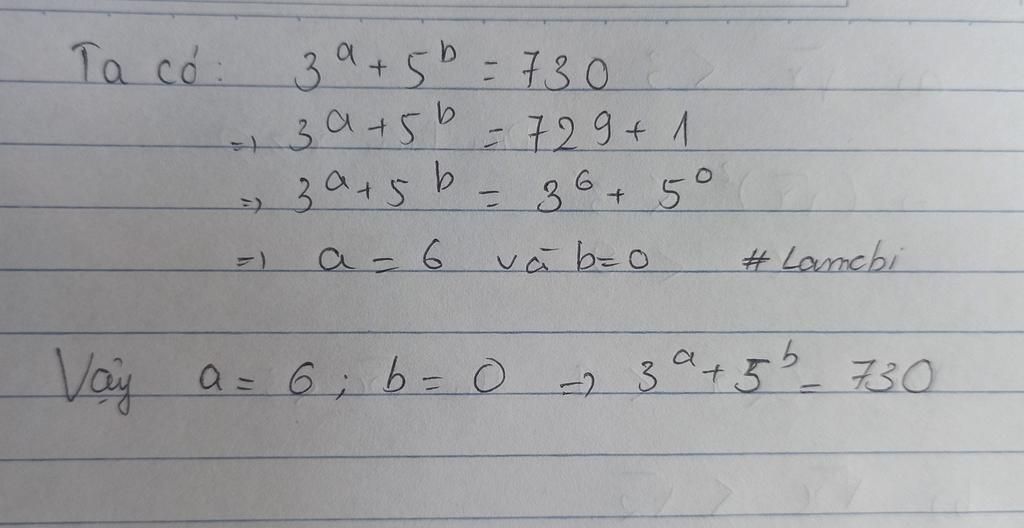 Ta có: 3^a + 5^b = 730
=> 3^a + 5^b = 729 + 1
=> 3^a + 5^b = 3^6 + 5^0
=> a = 6 và b = 0 # Lamcbi
Vậy a = 6 ; b = 0 => 3^a + 5^b = 730